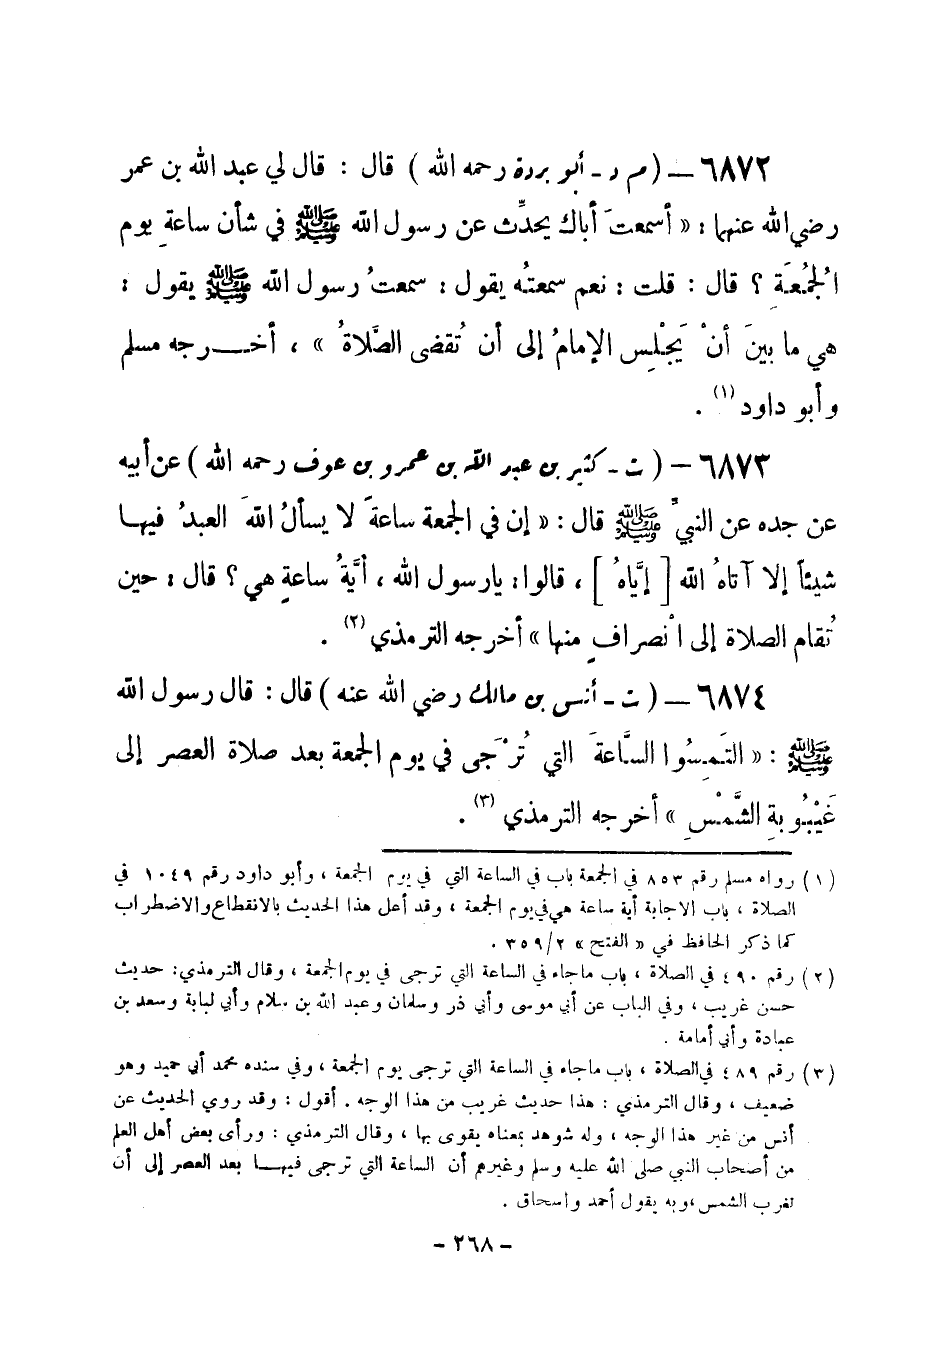 ٦٨٧٢ – ( م د - أبو بردة رحمه الله ) قال : قال لي عبد الله بن عمر
رضي الله عنهما : « أسمعتَ أباك يحدِّث عن رسول الله ﷺ في شأن ساعةِ يوم
الجُمُعَةِ ؟ قال : قلت : نعم سمعتُه يقول : سمعتُ رسول الله ﷺ يقول :
هي ما بينَ أنْ يَجْلِس الإمامُ إلى أن تُقضى الصَّلاةُ » ، أخـرجه مسلم
وأبو داود (١) .
٦٨٧٣ – ( ت - كثير بن عبد الله بن عمرو بن عوف رحمه الله ) عن أبيه
عن جده عن النبيِّ ﷺ قال : « إن في الجمعة ساعةً لا يسألُ اللهَ العبدُ فيهـا
شيئاً إلا آتاهُ الله [ إيَّاهُ ] ، قالوا : يارسول الله ، أيَّةُ ساعةٍ هي ؟ قال : حين
تُقام الصلاة إلى انْصرافٍ منها » أخرجه الترمذي (٢) .
٦٨٧٤ – ( ت - أنس بن مالك رضي الله عنه ) قال : قال رسول الله
ﷺ : « التَمِسُوا السَّاعةَ التي تُرْجَى في يوم الجمعة بعد صلاة العصر إلى
غَيْبُوبةِ الشَّمْسِ » أخرجه الترمذي (٣) .
(١) رواه مسلم رقم ٨٥٣ في الجمعة باب في الساعة التي في يوم الجمعة ، وأبو داود رقم ١٠٤٩ في
الصلاة ، باب الاجابة أية ساعة هي في يوم الجمعة ، وقد أعل هذا الحديث بالانقطاع والاضطراب
كما ذكر الحافظ في « الفتح » ٣٥٩/٢ .
(٢) رقم ٤٩٠ في الصلاة ، باب ماجاء في الساعة التي ترجى في يوم الجمعة ، وقال الترمذي : حديث
حسن غريب ، وفي الباب عن أبي موسى وأبي ذر وسلمان وعبد الله بن سلام وأبي لبابة وسعد بن
عبادة وأبي أمامة .
(٣) رقم ٤٨٩ في الصلاة ، باب ماجاء في الساعة التي ترجى يوم الجمعة ، وفي سنده محمد أبي حميد وهو
ضعيف ، وقال الترمذي : هذا حديث غريب من هذا الوجه . أقول : وقد روي الحديث عن
أنس من غير هذا الوجه ، وله شوهد بمعناه يقوى بها ، وقال الترمذي : ورأى بعض أهل العلم
من أصحاب النبي صلى الله عليه وسلم وغيرهم أن الساعة التي ترجى فيهـا بعد العصر إلى أن
تغرب الشمس ، وبه يقول أحمد واسحاق .
- ٢٦٨ -